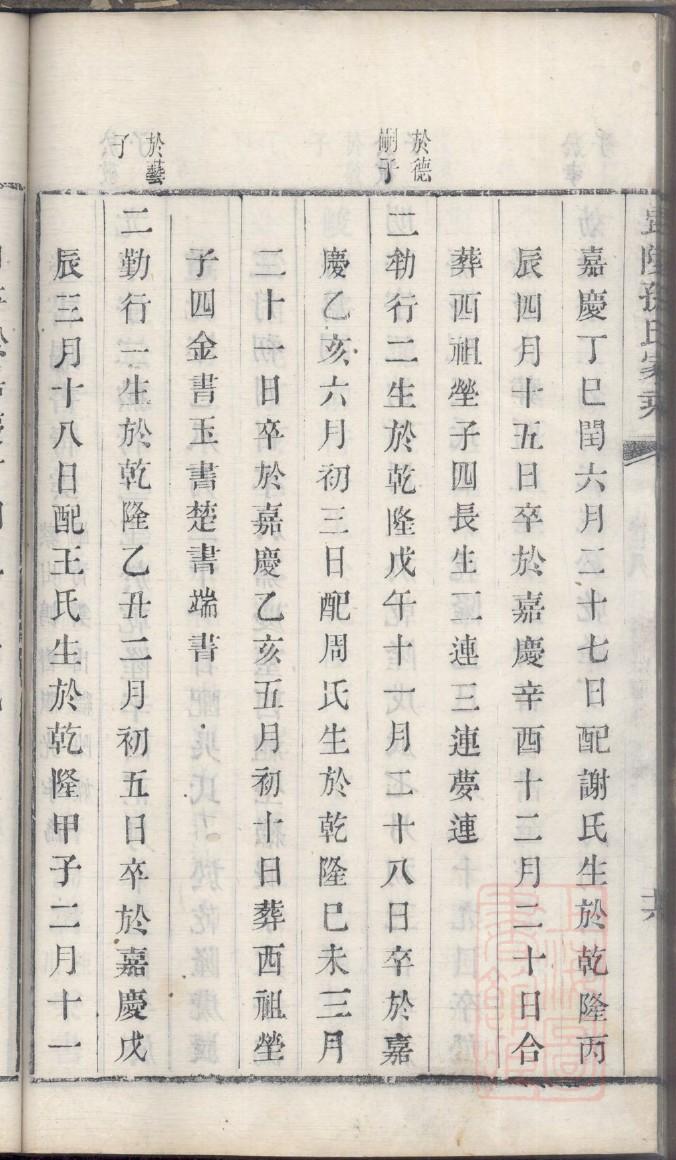 孫氏家乘
嘉慶丁巳閏六月二十七日配謝氏生於乾隆丙
辰四月十五日卒於嘉慶辛酉十二月二十日合
葬西祖塋子四長生三連夢連
於德
嗣子
二勑行二生於乾隆戊午十一月二十八日卒於嘉
慶乙亥六月初三日配周氏生於乾隆巳未三月
三十一日卒於嘉慶乙亥五月初十日葬西祖塋
子四金書玉書楚書端書
於藝
子
二勤行一生於乾隆乙丑二月初五日卒於嘉慶戊
辰三月十八日配王氏生於乾隆甲子二月十一